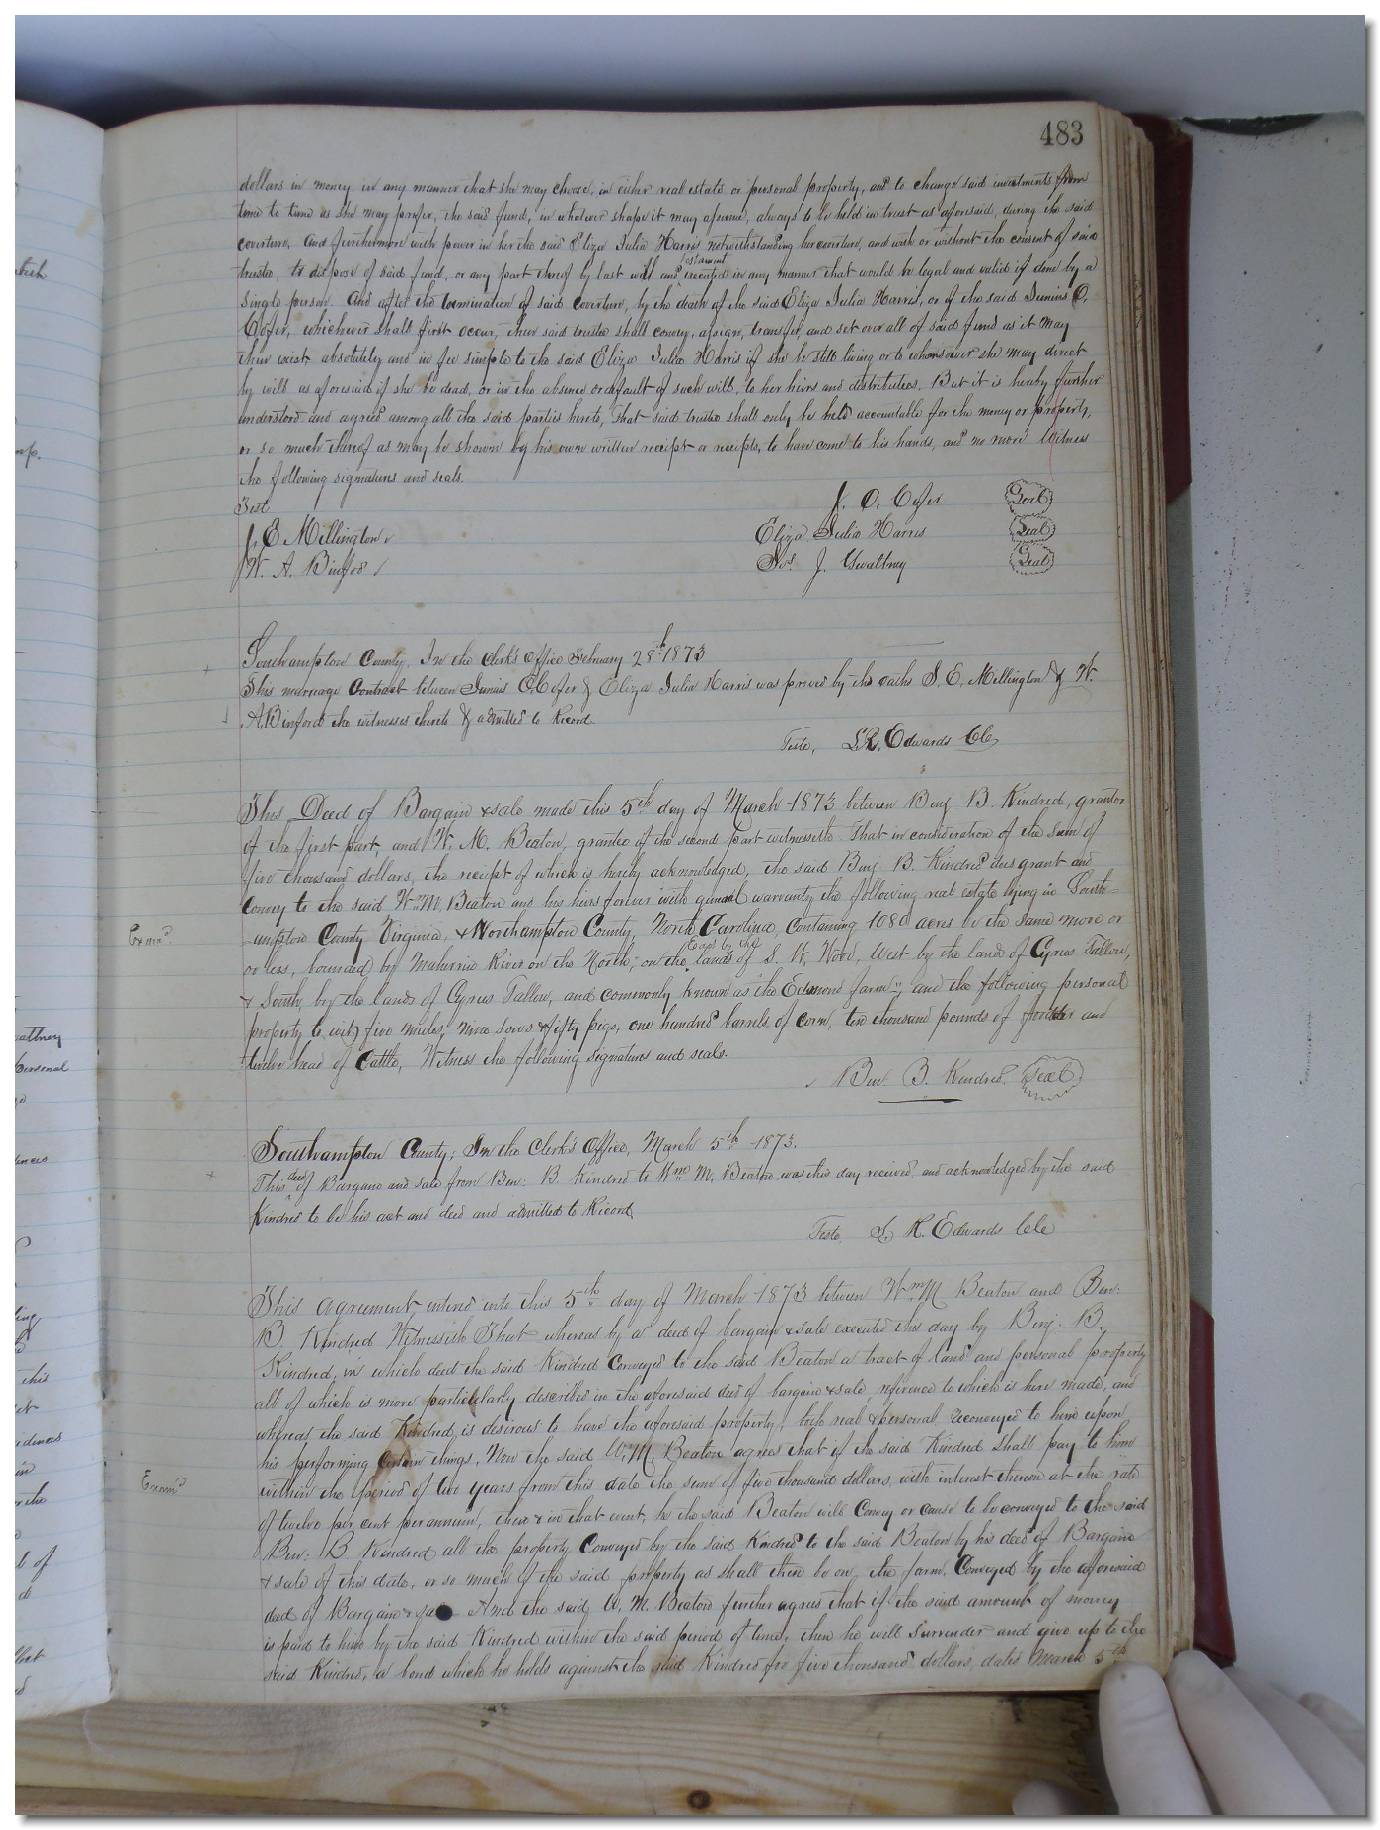 483
dollars in money in any manner that she may choose, in either real estate or personal property, and to change said investments from
time to time as she may prefer, the said fund, in whatever shape it may assume, always to be held in trust as aforesaid, during the said
coverture, And furthermore with power in her the said Eliza Julia Harris notwithstanding her coverture, and with or without the consent of said
trustee, to dispose of said fund, or any part thereof by last will and testament executed in any manner that would be legal and valid if done by a
single person. And after the termination of said coverture, by the death of the said Eliza Julia Harris, or of the said Junius O.
Cofer, whichever shall first occur, then said trustee shall convey, assign, transfer, and set over all of said fund as it may
then exist, absolutely and in fee simple to the said Eliza Julia Harris if she be still living or to whomsoever she may direct
by will as aforesaid if she be dead, or in the absence or default of such will, to her heirs and distributees. But it is hereby further
understood and agreed among all the said parties hereto, That said trustee shall only be held accountable for the money or property,
or so much thereof as may be shown by his own written receipt or receipts, to have come to his hands, and no more Witness
the following signatures and seals.
Test
J. O. Cofer Seal
J. E. Millington
Eliza Julia Harris Seal
W. A. Binford
Jos. J. Gwaltney Seal
Southampton County, In the Clerk's Office February 28th 1873
This marriage Contract between Junius O. Cofer & Eliza Julia Harris was proved by the oaths J. E. Millington & W.
A. Binford the witnesses thereto & admitted to Record.
Teste, L.R. Edwards Clk
This Deed of Bargain & sale made this 5th day of March 1873 between Benj B. Kindred, grantor
of the first part, and W. M. Beaton, grantee of the second part witnesseth That in consideration of the sum of
five thousand dollars, the receipt of which is hereby acknowledged, the said Benj B. Kindred does grant and
Convey to the said Wm. M. Beaton and his heirs forever with general warranty the following real estate lying in South-
Exam'd
-ampton County Virginia, & Northampton County, North Carolina, Containing 1080 acres be the same more or
or less, bounded by Meherrin River on the North, on the East by the lands of S. W. Hood, West by the land of Cyrus Fallow,
& South by the lands of Cyrus Fallow, and commonly known as the "Edmond farm", and the following personal
property to, wit, five mules, nine sows & fifty pigs, one hundred barrels of corn, ten thousand pounds of fodder and
twelve head of Cattle, Witness the following signatures and seals.
Ben B. Kindred, Seal
Southampton County; In the Clerk's Office, March 5th 1873.
This deed of Bargain and sale from Ben: B. Kindred to Wm. M. Beaton was this day received and acknowledged by the said
Kindred to be his act and deed and admitted to Record
Teste L. R. Edwards Clk
This agreement entered into this 5th day of March 1873 between Wm M Beaton and Ben:
B. Kindred Witnesseth That whereas by a deed of bargain & sale executed this day by Benj. B.
Kindred, in which deed the said Kindred Conveyed to the said Beaton a tract of land and personal property
all of which is more particularly described in the aforesaid deed of bargain & sale, reference to which is here made, and
whereas the said Kindred, is desirous to have the aforesaid property, both real & personal, reconveyed to him upon
his performing Certain things, Now the said W. M. Beaton agrees that if the said Kindred shall pay to him
Exam'd
within the period of two years from this date the sum of five thousand dollars, with interest thereon at the rate
of twelve per cent per annum, then & in that event, he the said Beaton will Convey or cause to be conveyed to the said
Ben: B Kindred all the property Conveyed by the said Kindred to the said Beaton by his deed of Bargain
& sale of this date, or so much of the said property as shall then be on the farm, Conveyed by the aforesaid
deed of Bargain & sale And the said W. M. Beaton further agrees that if the said amount of money
is paid to him by the said Kindred within the said period of time, then he will surrender and give up to the
said Kindred, a bond which he holds against the said Kindred for five thousand dollars, dated March 5th